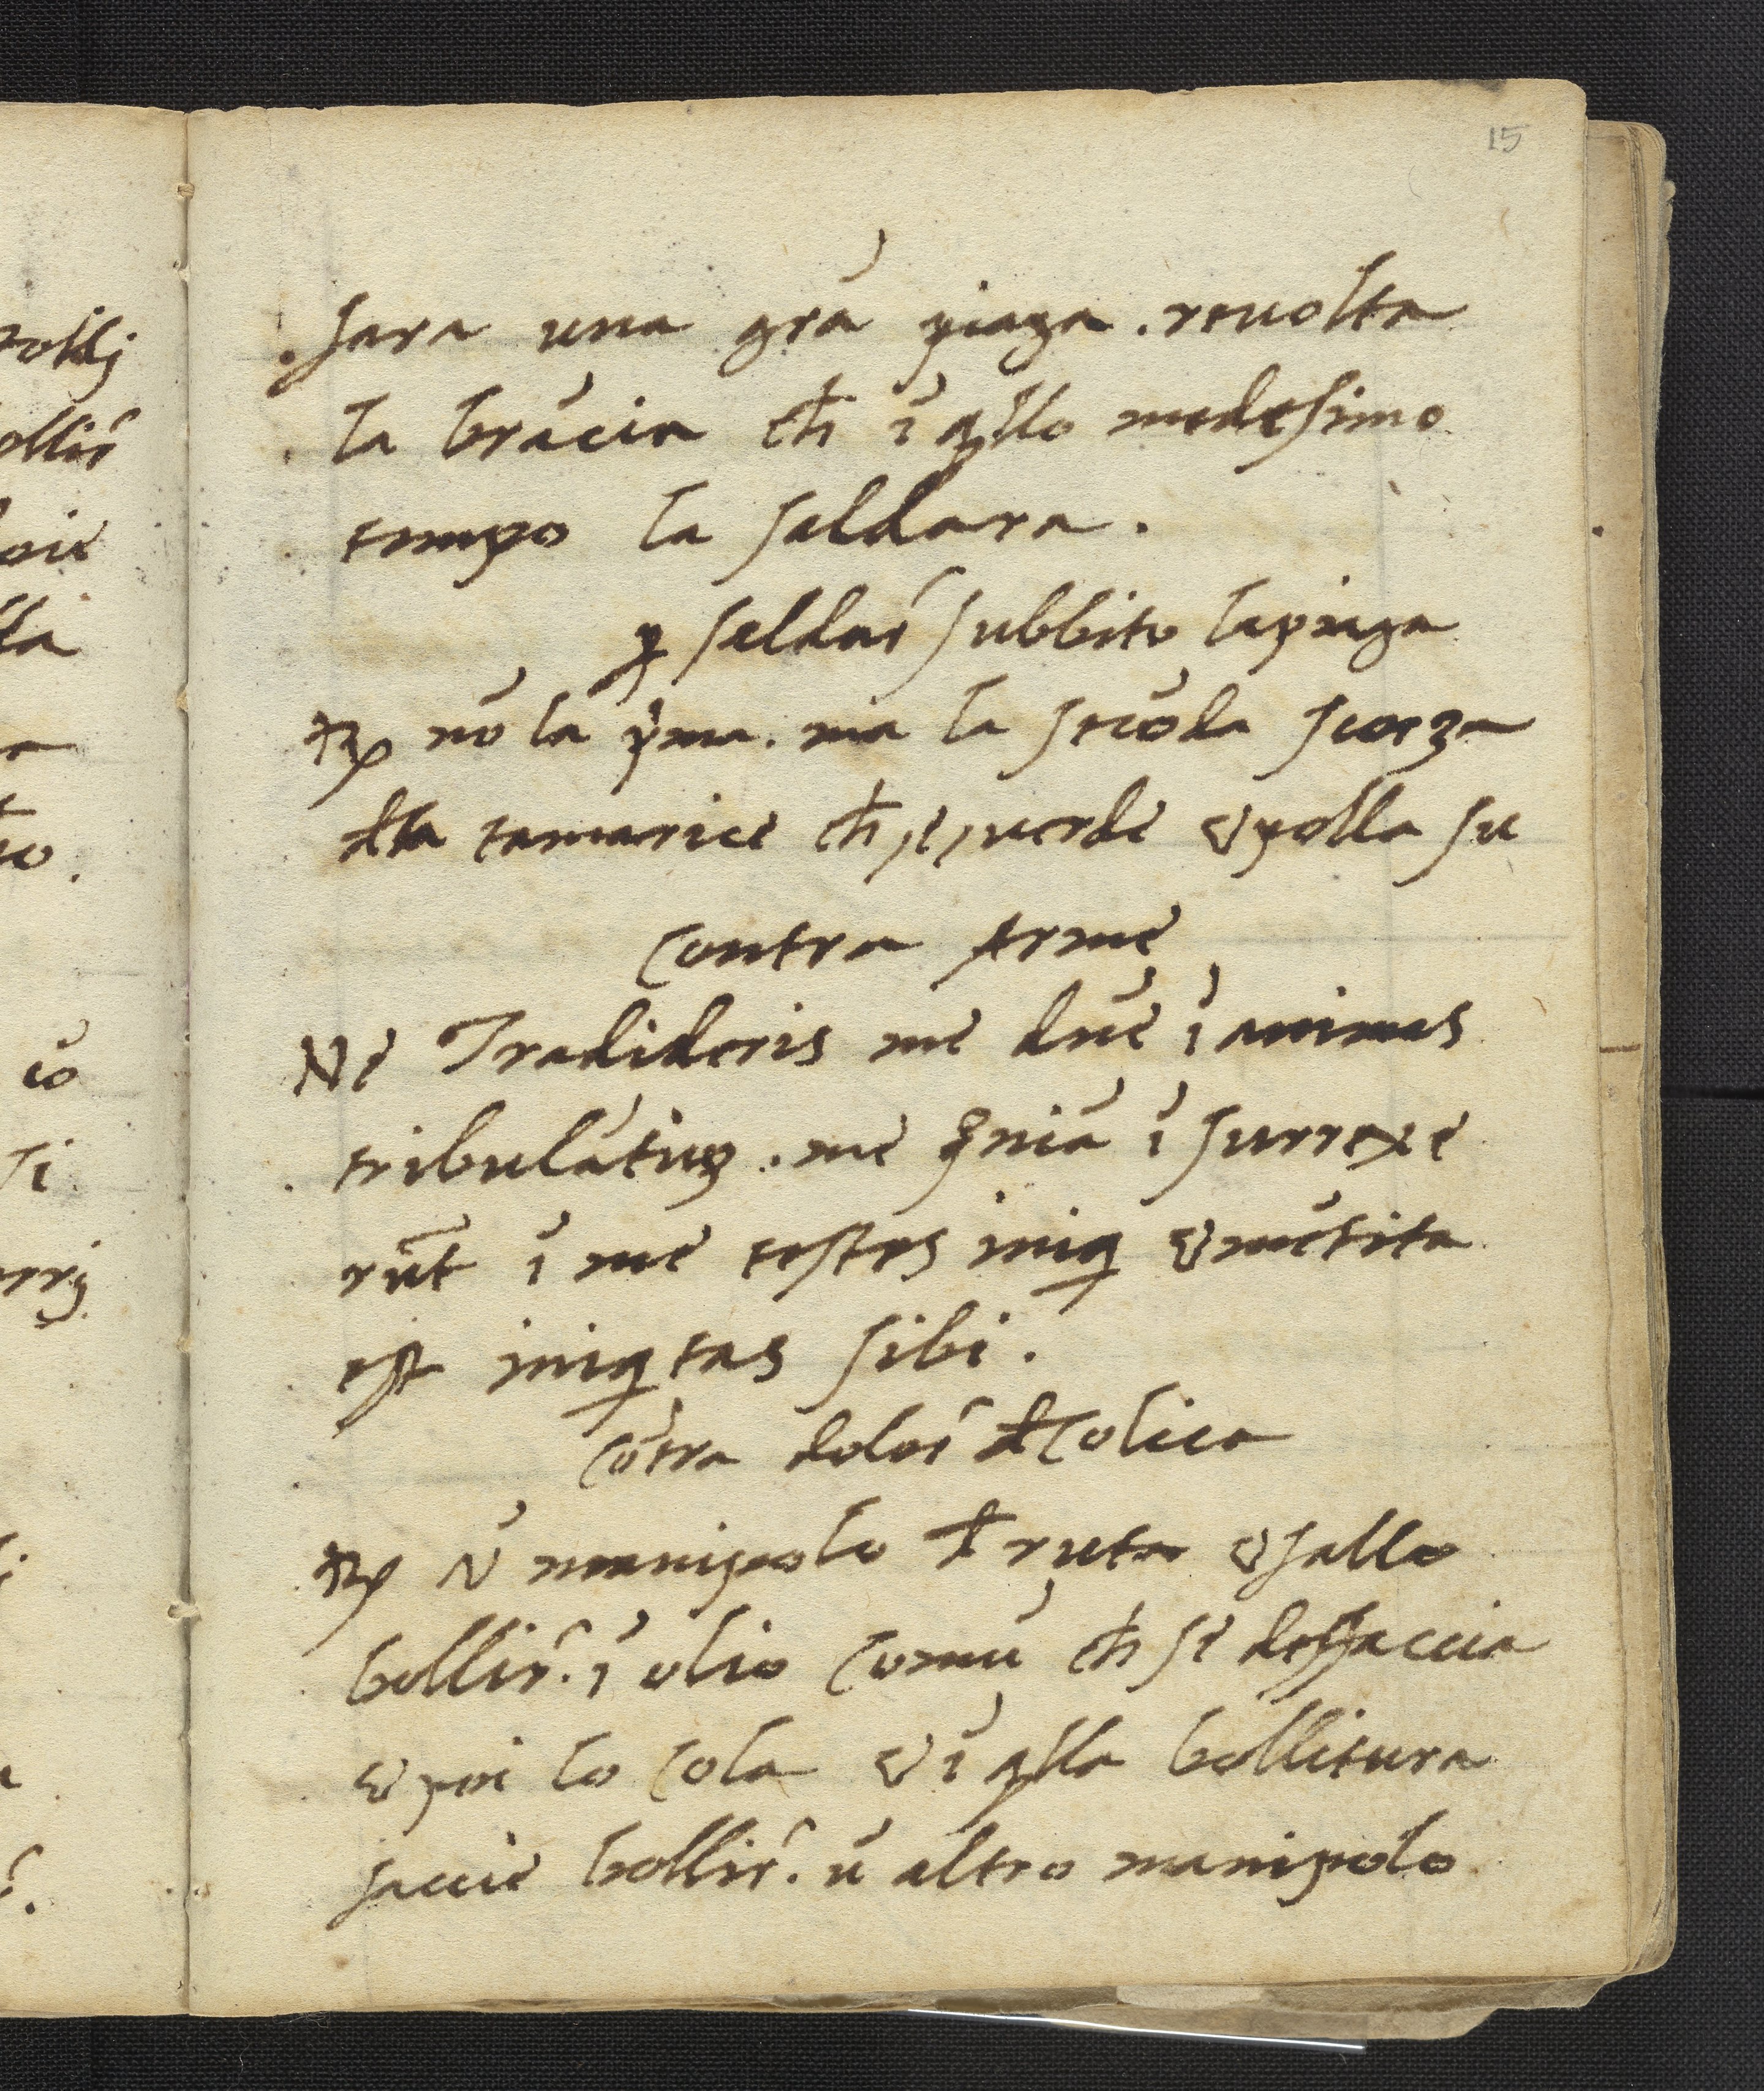 15
fara una grā piaga. revolta
la brācia cħ ī q̄llo medesimo
tempo la saldara.
ꝑ saldar̃ subbito lapiaga
℞ nō la p̃ma. ma la secōda scorza
đlla tamarice cħ, è, verde & polla su
Contra Arme
Ne Tradideris me dn̄e ī animas
tribulātiuꝫ. me qm̄iā ī surrexe
rūt ī me testes iniq̄ & mētita
est iniq̄tas sibi.
Cōtra dolor̃ đ Colica
℞ ū manipolo đ ruta & fallo
bollir̃. ī olio comū cħ se desfaccia
& poi lo cola & ī q̄lla bollitura
faccie bollir̃. ū altro manipolo